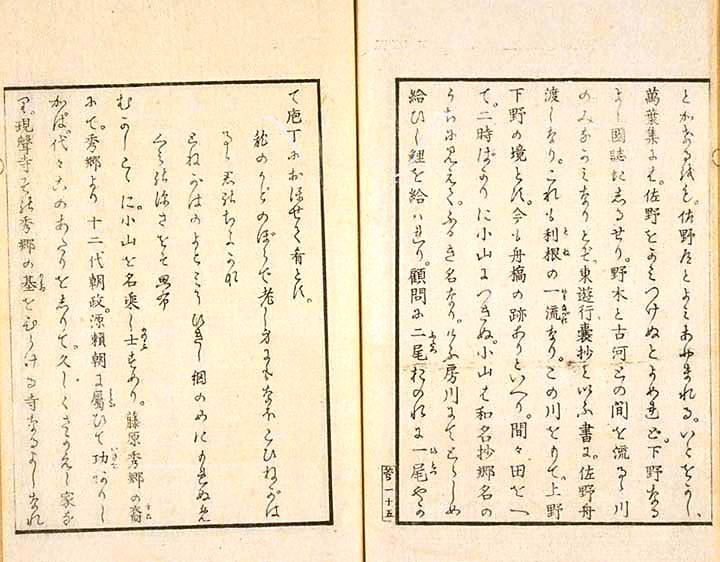 佐野
萬葉集には。佐野をよみつけぬとよめれど。下野なる
よし國誌にしるせり。野木と古河との間を流るゝ川
のみなかみなりとぞ。東遊行嚢抄といふ書に。佐野舟
渡しなり。これも利根の一流なり。この川をもて。上野
下野の境とす。今も舟橋の跡ありといへり。間々田をへ
て。二時ばかりに小山につきぬ。小山は和名抄郷名の
うちに見えて。ふるき名なり。けふ房川にてとらしめ
給ひし鯉を給はれり。顧問に二尾おのれに一尾やが
一十五
て庖丁におほせて肴とす。
龍のかどのぼらで老し身にもなほこひねがは
るゝ君がちよかな
とねがはのよどみにひきし網のめにもれぬ
深さをぞ
むかしこゝに小山を名乘し士あり。藤原秀郷の裔
にて。秀郷より十二代朝政。源頼朝に屬ひて功ありし
かば。代々このあたりをしりて。久しくさかえし家な
り。現聲寺秀郷の墓を寺なるよしなれ